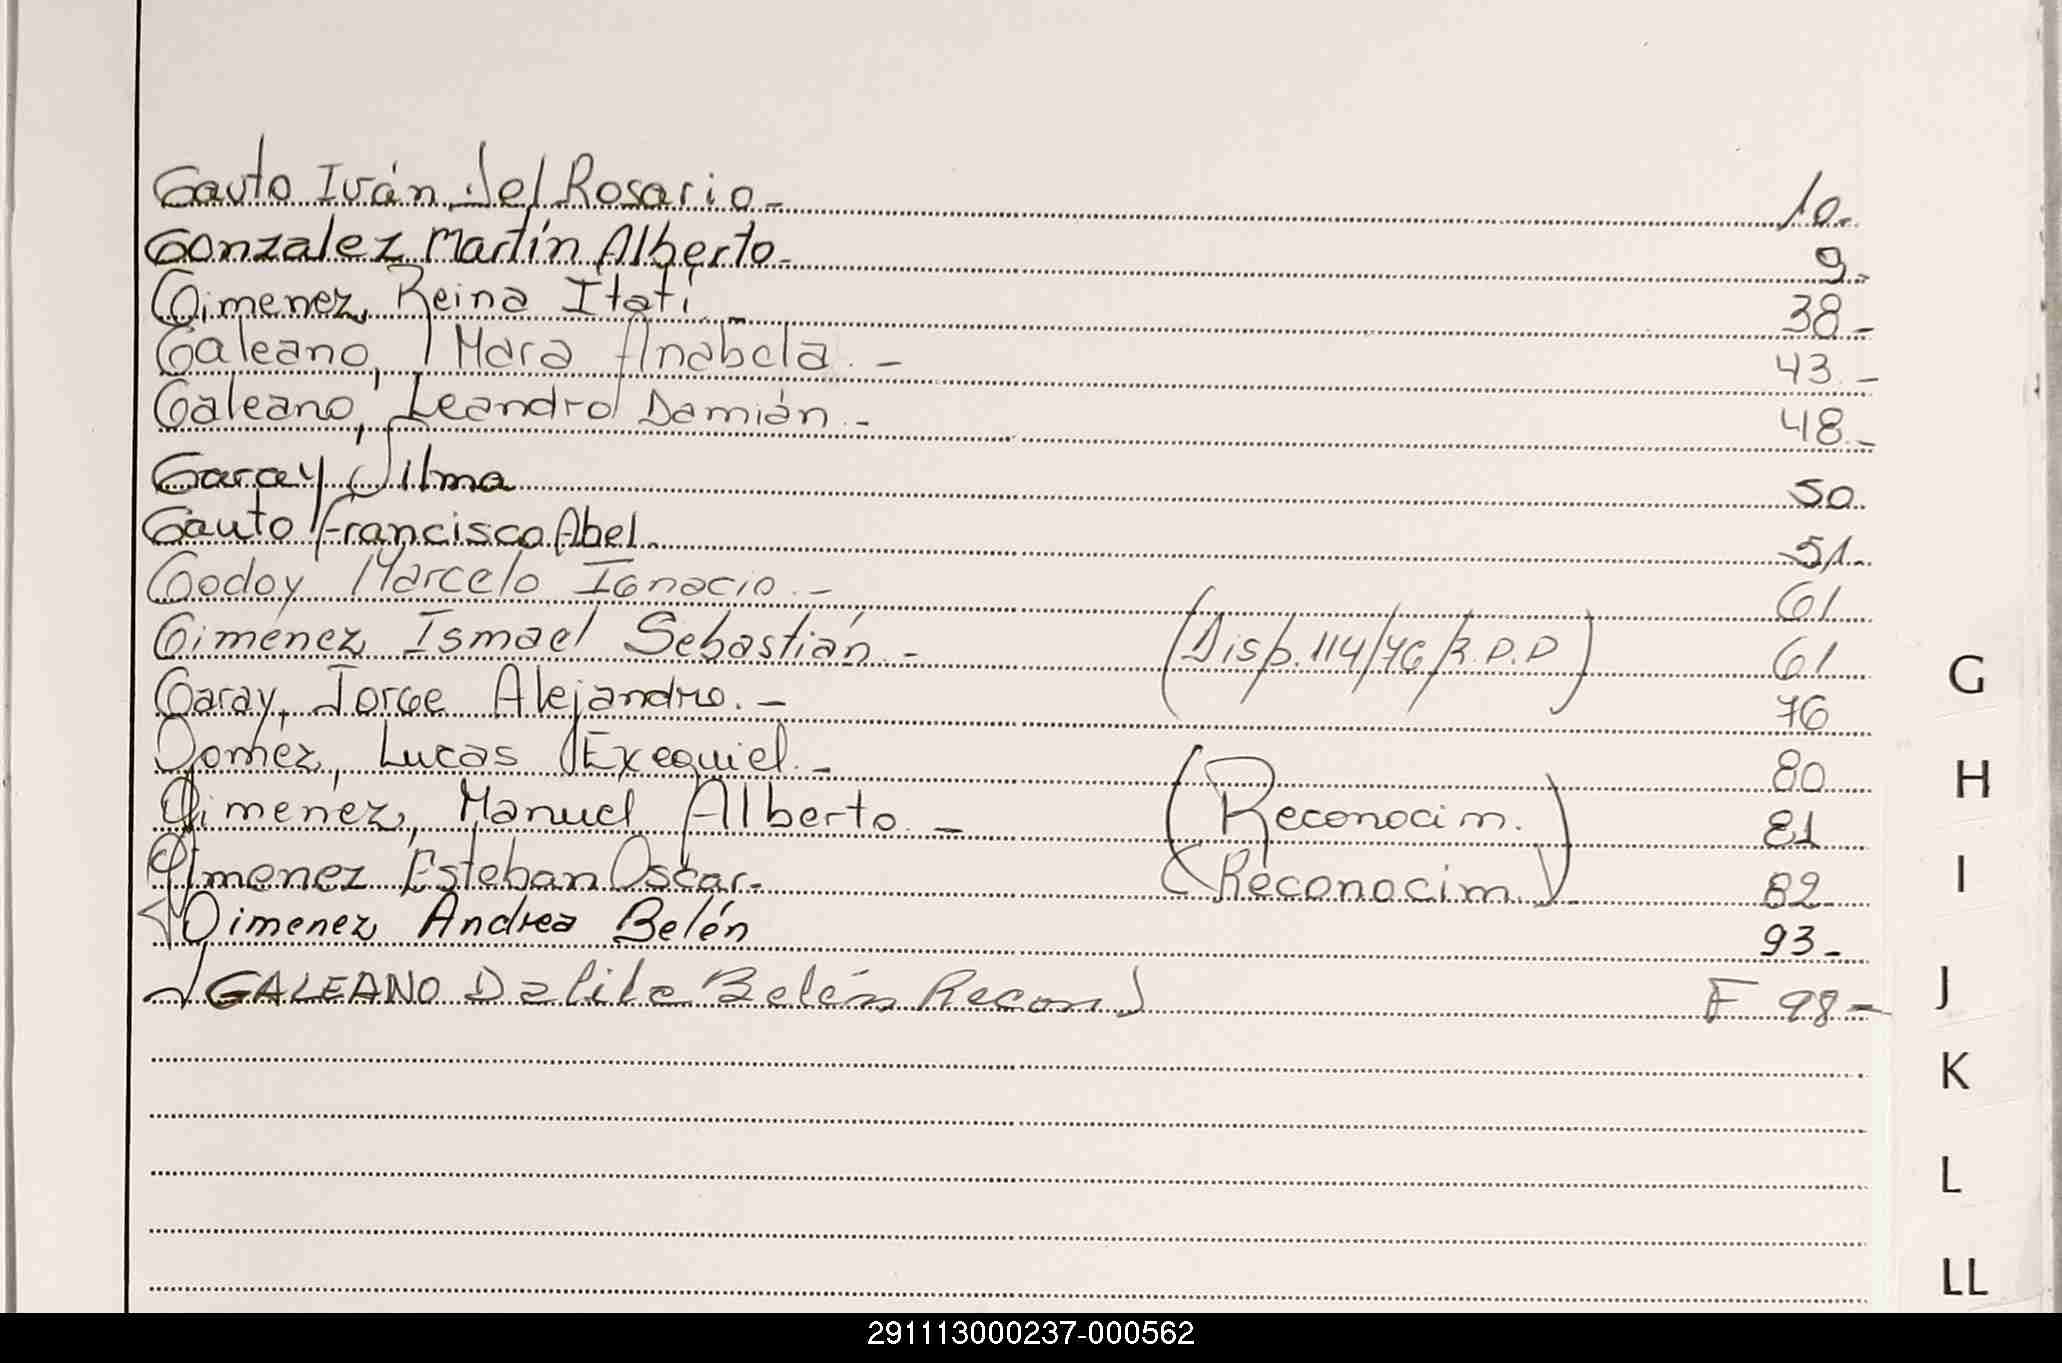 Gauto Iván del Rosario- 10-
Gonzalez Martín Alberto- 9-
Gimenez, Reina Itatí - 38-
Galeano, Mara Anabela.- 43.-
Galeano, Leandro Damián.- 48.-
Garay Silma 50
Gauto Francisco Abel. 51-
Godoy Marcelo Ignacio.- 61
Gimenez Ismael Sebastián.- (Disp. 114/76/R.D.D) 61
Garay, Jorge Alejandro.- 76
Gomez, Lucas Exequiel.- 80
Gimenez, Manuel Alberto.- (Reconocim.) 81
Gimenez Esteban Oscar- (Reconocim.) 82
Gimenez Andrea Belén 93-
GALEANO Dalila Belén Recon) F 98-
G
H
I
J
K
L
LL
291113000237-000562